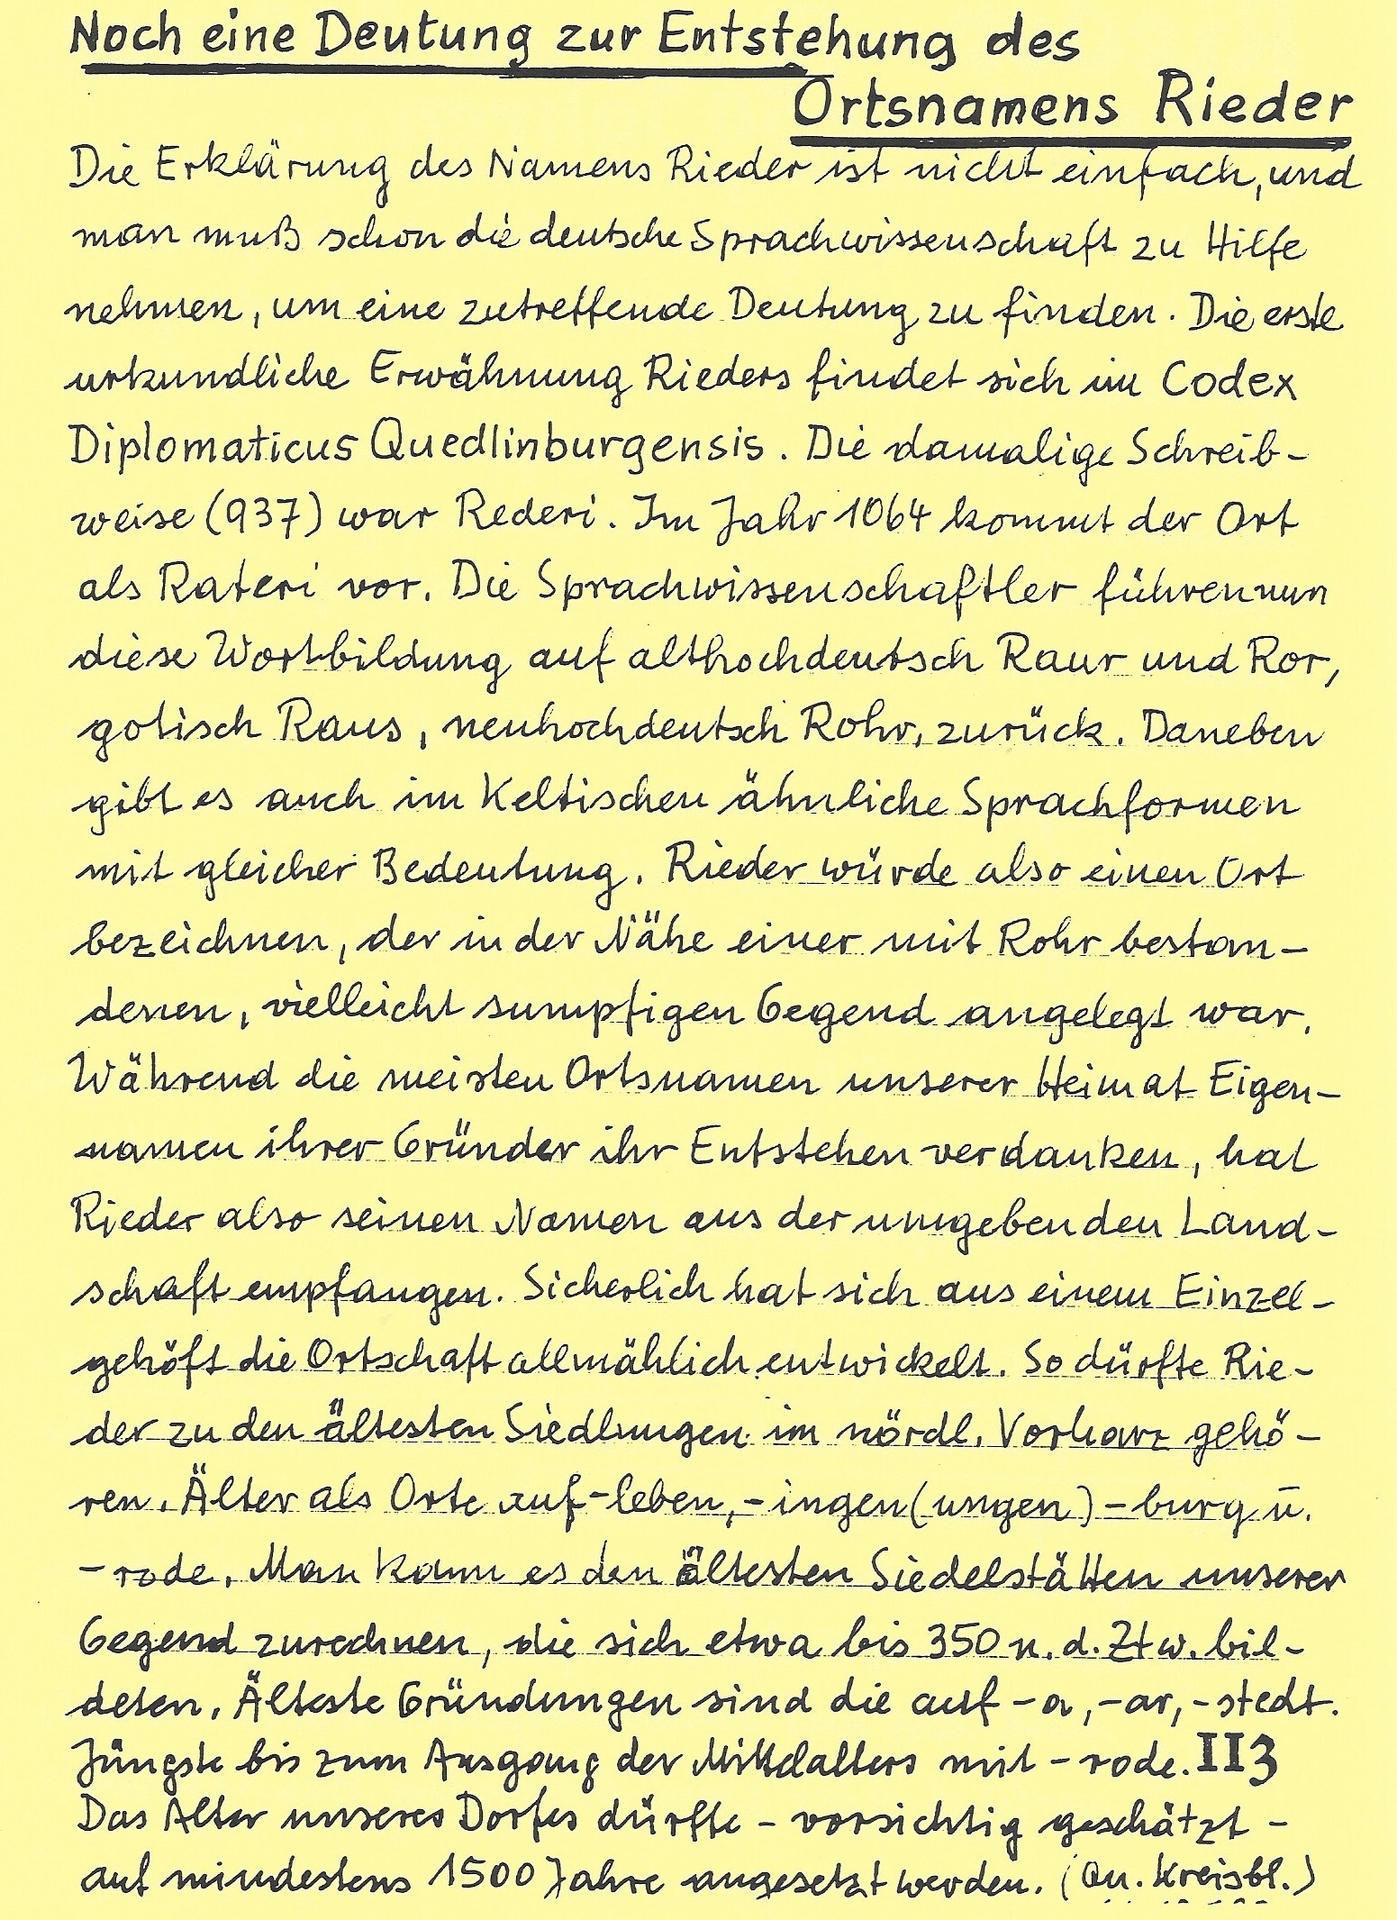 Noch eine Deutung zur Entstehung des
Ortsnamens Rieder
Die Erklärung des Namens Rieder ist nicht einfach, und
man muß schon die deutsche Sprachwissenschaft zu Hilfe
nehmen, um eine zutreffende Deutung zu finden. Die erste
urkundliche Erwähnung Rieders findet sich im Codex
Diplomaticus Quedlinburgensis. Die damalige Schreib-
weise (937) war Rederi. Im Jahr 1064 kommt der Ort
als Rateri vor. Die Sprachwissenschaftler führen nun
diese Wortbildung auf althochdeutsch Raur und Ror,
gotisch Raus, neuhochdeutsch Rohr, zurück. Daneben
gibt es auch im Keltischen ähnliche Sprachformen
mit gleicher Bedeutung. Rieder würde also einen Ort
bezeichnen, der in der Nähe einer mit Rohr bestan-
denen, vielleicht sumpfigen Gegend angelegt war.
Während die meisten Ortsnamen unserer Heimat Eigen-
namen ihrer Gründer ihr Entstehen verdanken, hat
Rieder also seinen Namen aus der umgebenden Land-
schaft empfangen. Sicherlich hat sich aus einem Einzel-
gehöft die Ortschaft allmählich entwickelt. So dürfte Rie-
der zu den ältesten Siedlungen im nördl. Vorharz gehö-
ren. Älter als Orte auf -leben, -ingen (ungen) -burg u.
-rode. Man kann es den ältesten Siedelstätten unserer
Gegend zurechnen, die sich etwa bis 350 n. d. Ztw. bil-
deten. Älteste Gründungen sind die auf -a, -ar, -stedt.
Jüngste bis zum Ausgang der Mittelalters mit -rode. II3
Das Alter unseres Dorfes dürfte - vorsichtig geschätzt -
auf mindestens 1500 Jahre angesetzt werden. (Qu. Kreisbl.)